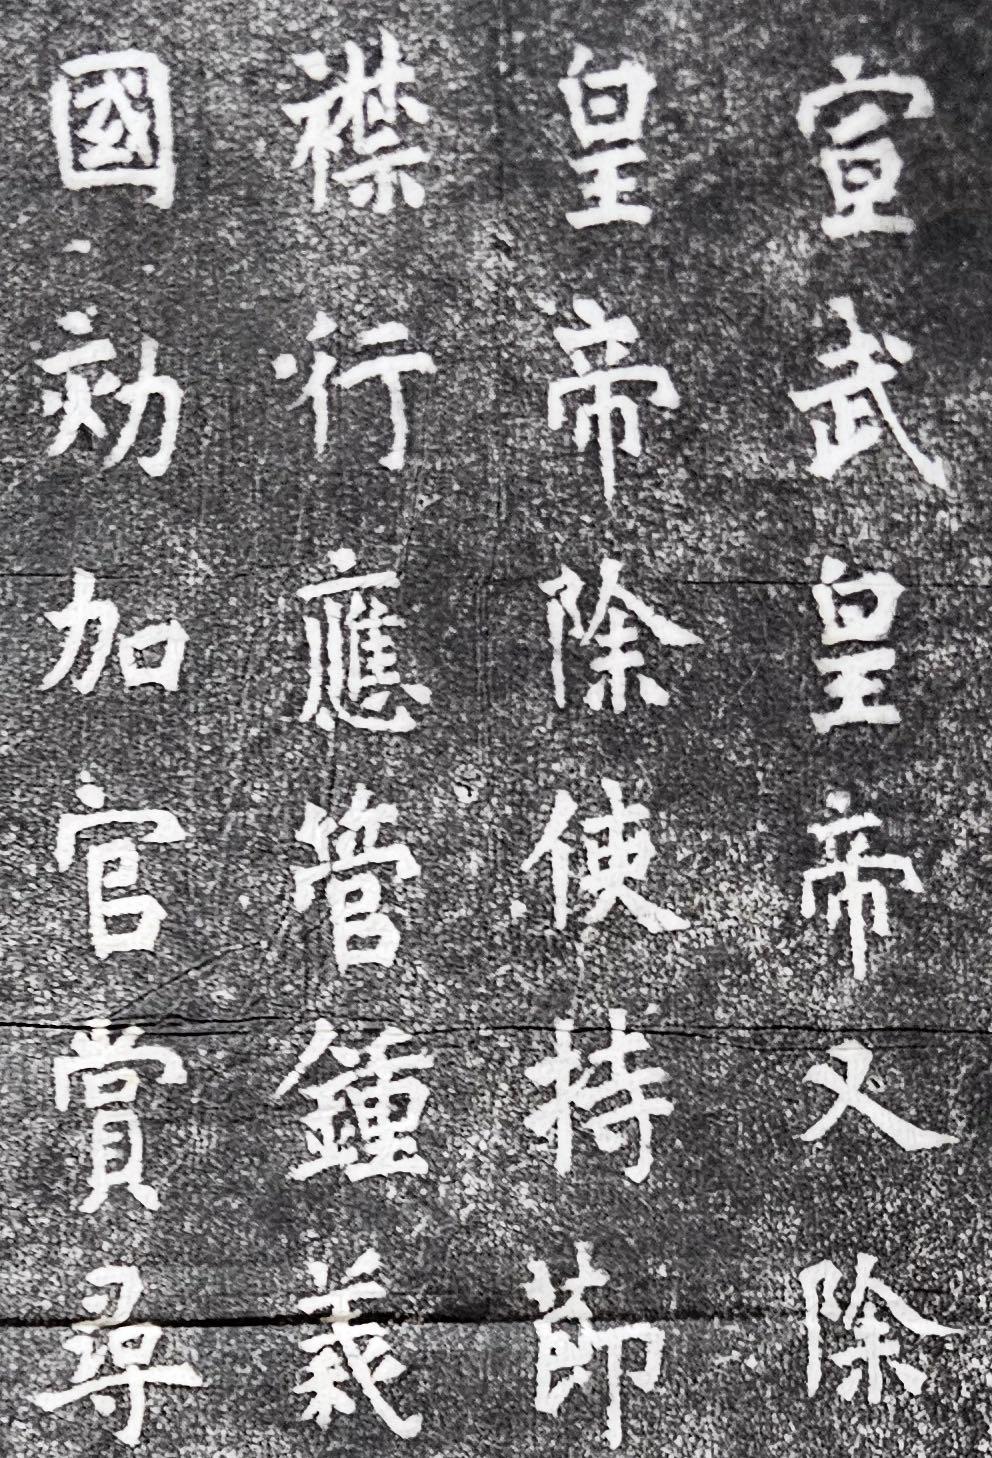 宣武皇帝又除
皇帝除使持節
襟行應管鍾義
國効加官賞尋